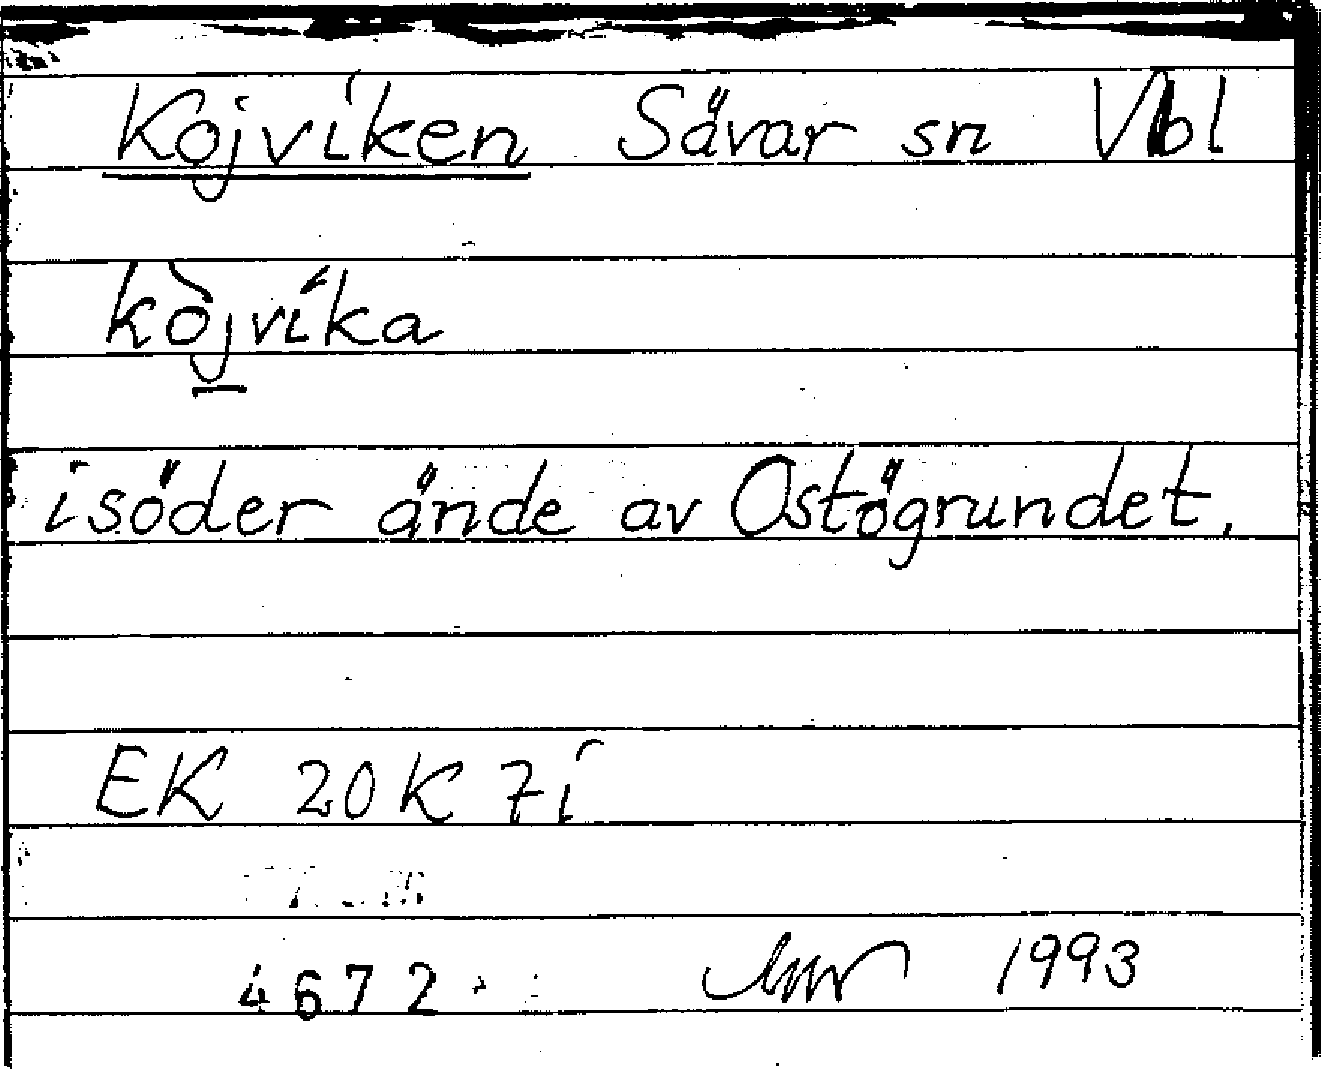 Kojviken Sävar sn Vbl
kòjvíka
i söder ände av Ostögrundet.
EK 20K 7i
4672 1993